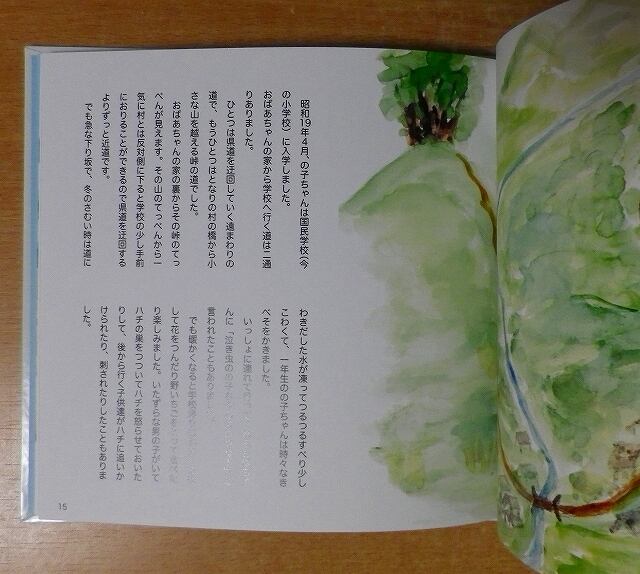 昭和19年4月、の子ちゃんは国民学校（今
の小学校）に入学しました。
おばあちゃんの家から学校へ行く道は二通
りありました。
ひとつは県道を迂回していく遠まわりの
道で、もうひとつはとなりの村の橋から小
さな山を越える峠の道でした。
おばあちゃんの家の裏からその峠のてっ
ぺんが見えます。その山のてっぺんから一
気に村とは反対側に下ると学校の少し手前
におりることができるので県道を迂回する
よりずっと近道です。
でも急な下り坂で、冬のさむい時は道に
わきだした水が凍ってつるつるすべり少し
こわくて、一年生のの子ちゃんは時々なき
べそをかきました。
いっしょに連れて
んに「泣き虫のの子ち
言われたこともありま
でも暖かくなると学校帰り
して花をつんだり野いちごをとって食べた
り楽しみました。いたずらな男の子がいて
ハチの巣をつついてハチを怒らせておいた
りして、後から行く子供達がハチに追いか
けられたり、刺されたりしたこともありま
した。
15